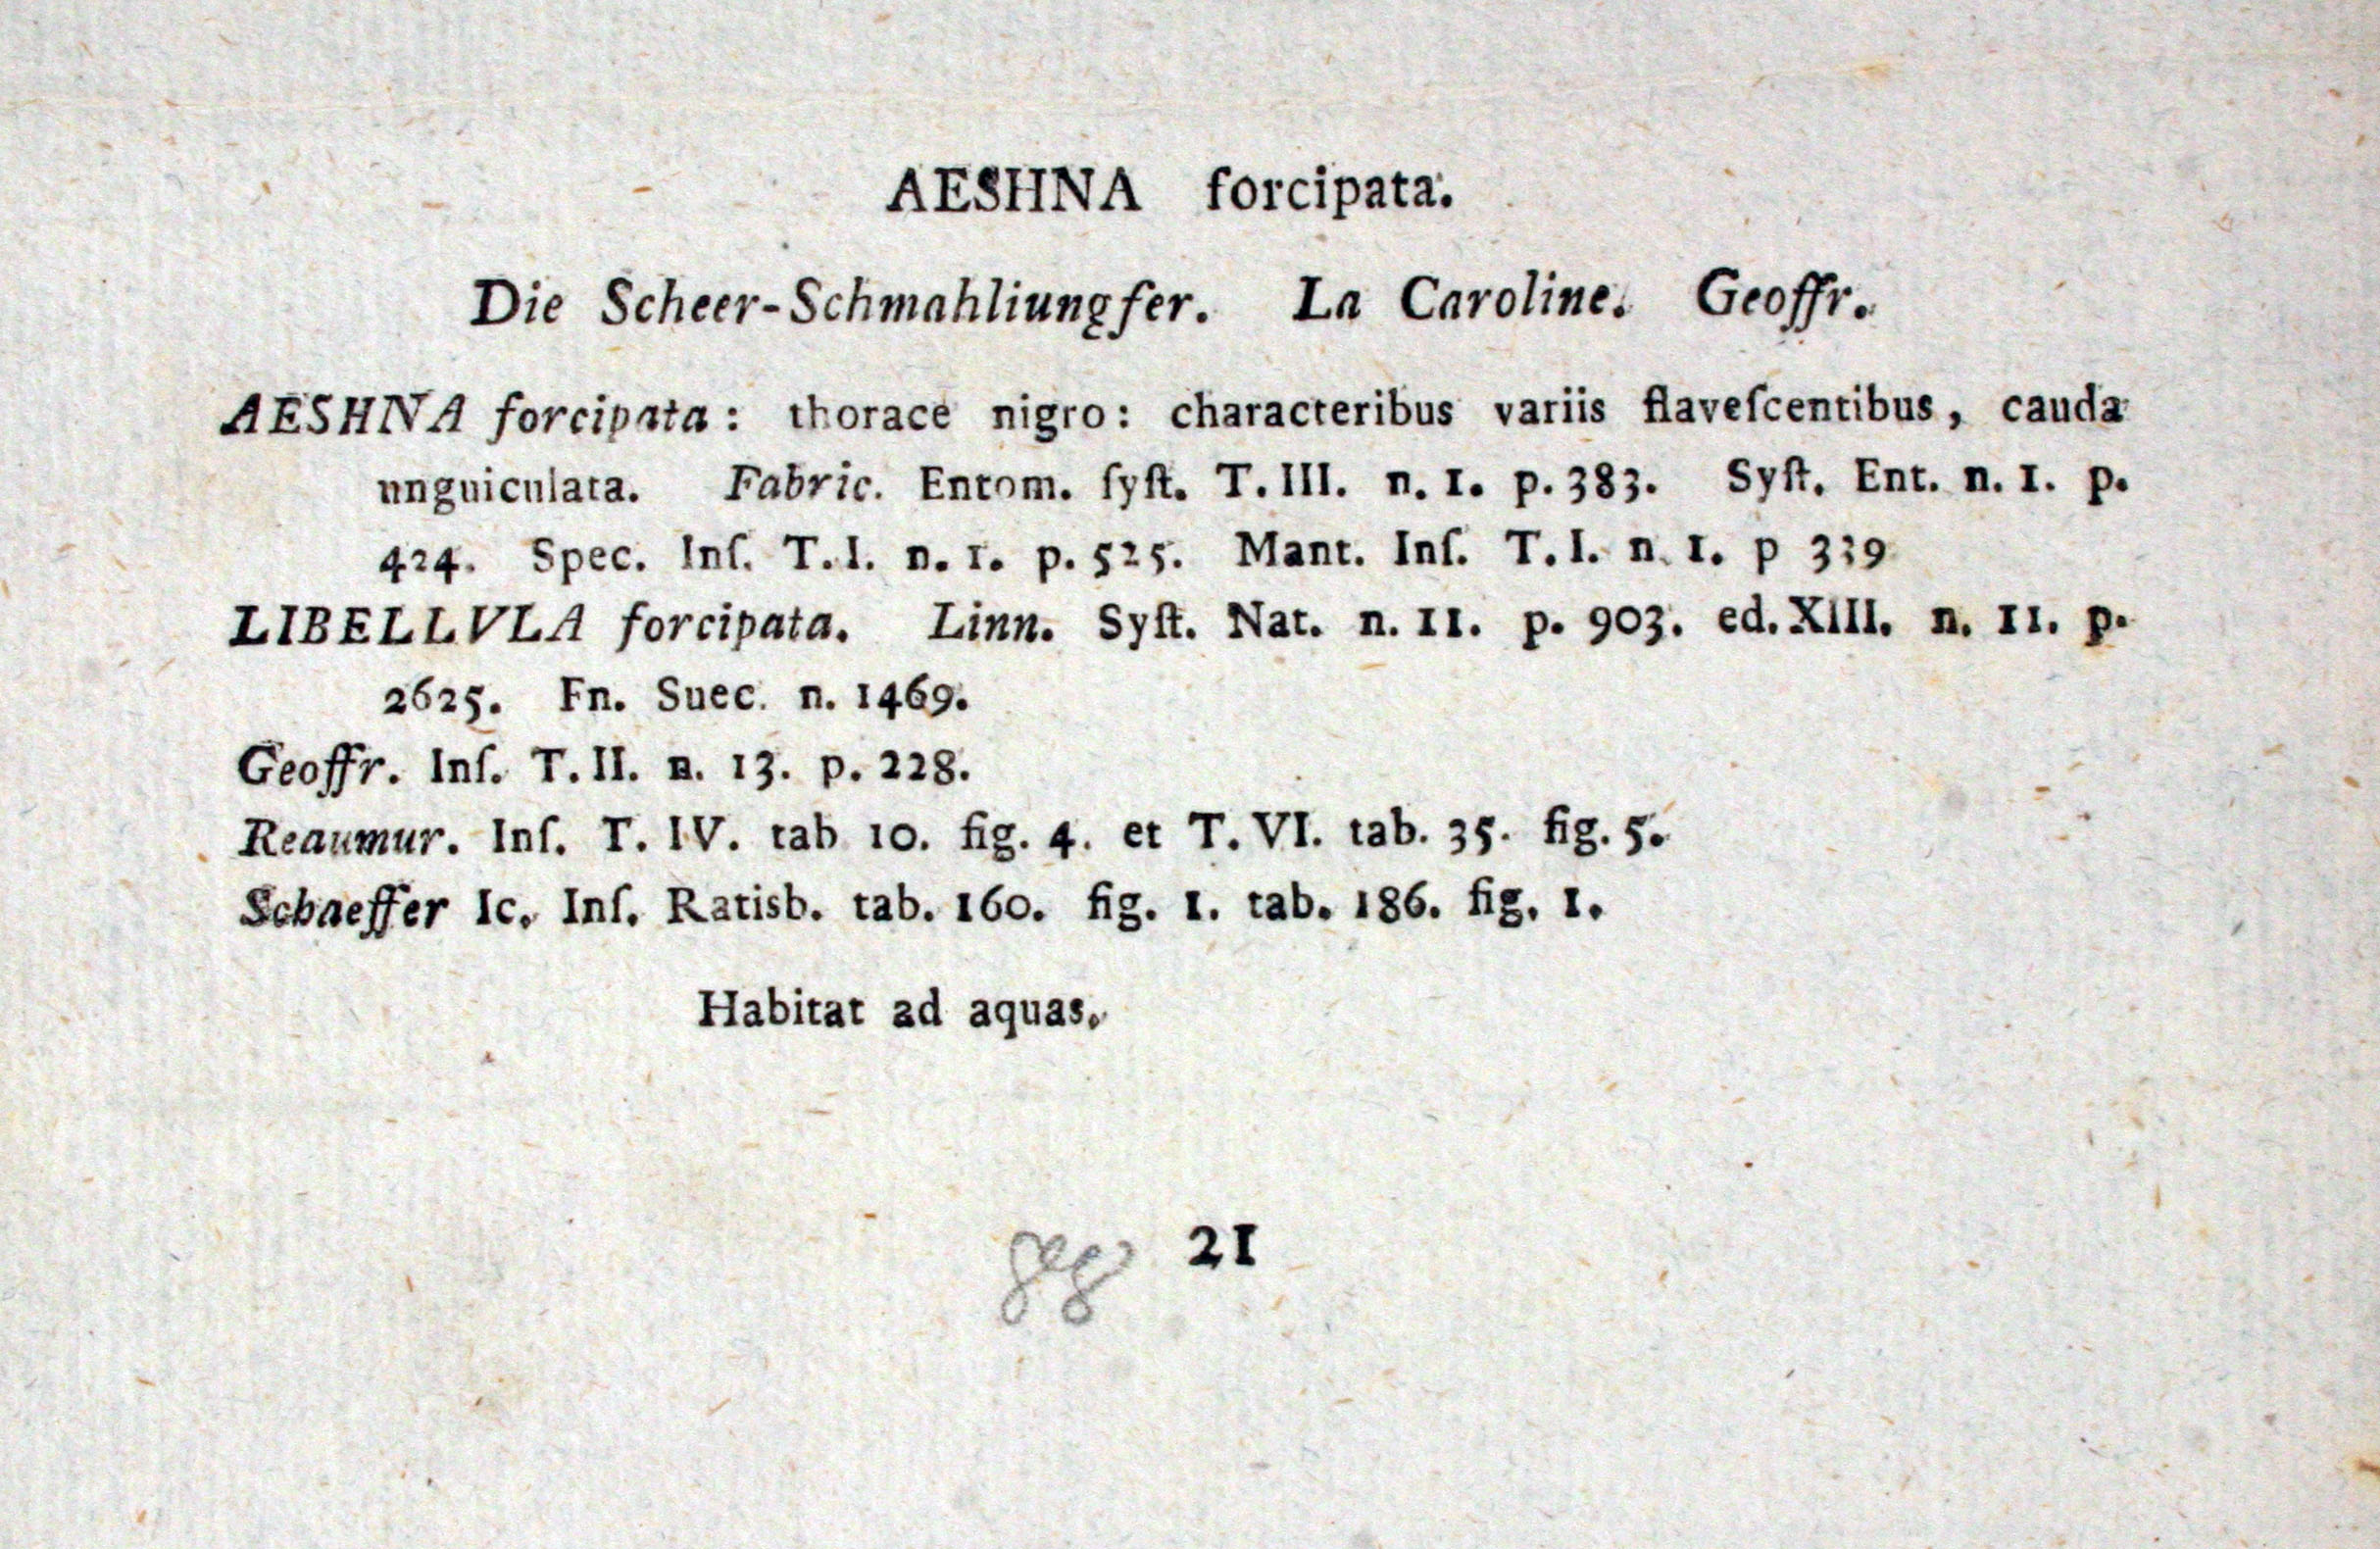 AESHNA forcipata.
Die Scheer-Schmahliungfer. La Caroline. Geoffr.
AESHNA forcipata: thorace nigro: characteribus variis flaveſcentibus, cauda
unguiculata. Fabric. Entom. ſyſt. T. III. n. 1. p. 383. Syſt. Ent. n. 1. p.
424. Spec. Inſ. T. I. n. 1. p. 525. Mant. Inſ. T. I. n. 1. p 339
LIBELLVLA forcipata. Linn. Syſt. Nat. n. 11. p. 903. ed. XIII. n. 11. p.
2625. Fn. Suec. n. 1469.
Geoffr. Inſ. T. II. n. 13. p. 228.
Reaumur. Inſ. T. IV. tab 10. fig. 4. et T. VI. tab. 35. fig. 5.
Schaeffer Ic. Inſ. Ratisb. tab. 160. fig. 1. tab. 186. fig. 1.
Habitat ad aquas.
21